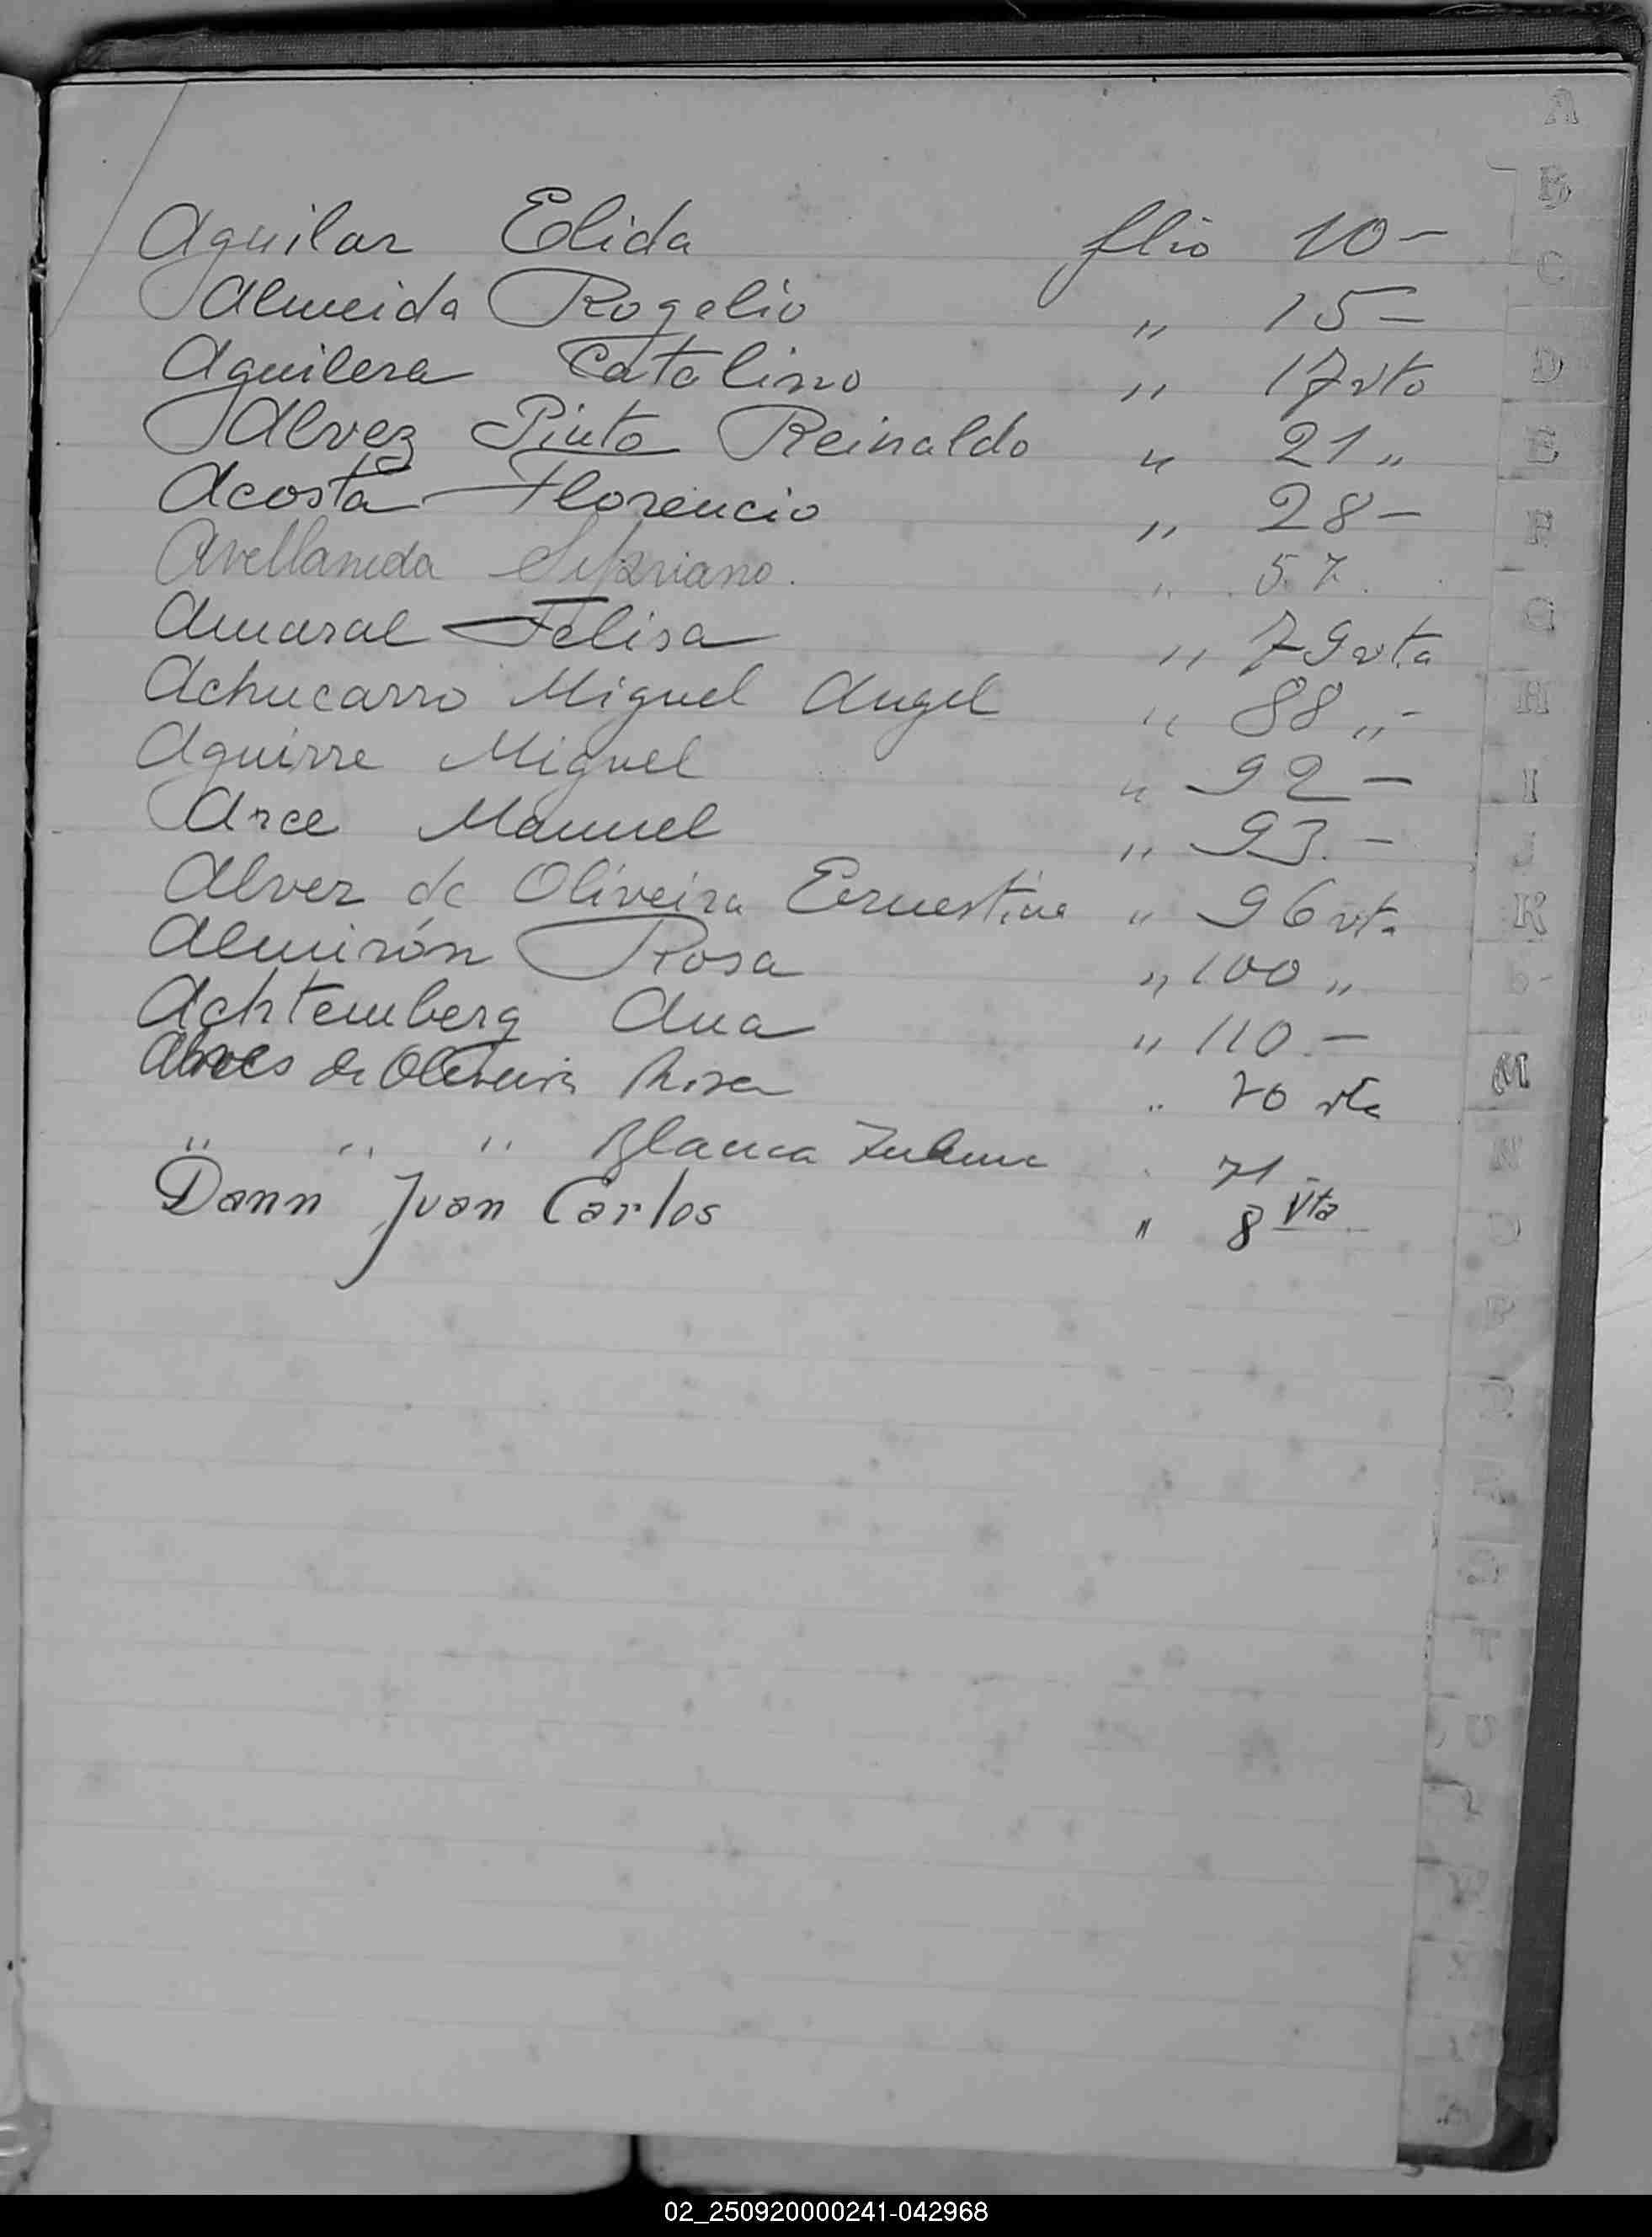 Aguilar Elida flio 10 -
Almeida Rogelio " 15 -
Aguilera Catalino " 17 vto
Alvez Pinto Reinaldo " 21 "
Acosta Florencio " 28 -
Avellaneda Sipriano. " 57.
Amaral Felisa " 79 vta
Achucarro Miguel Angel " 88 " -
Aguirre Miguel " 92 -
Arce Manuel " 93. -
Alvez de Oliveira Eernestina " 96 vta
Almirón Rosa " 100 "
Achtemberg Ana " 110. -
Alves de Oliveira Rosa " 70 vta
" " " Blanca Zulema " 71 -
Dann Juan Carlos " 8 Vta
A
B
C
D
E
F
G
H
I
J
K
M
N
O
02_250920000241-042968